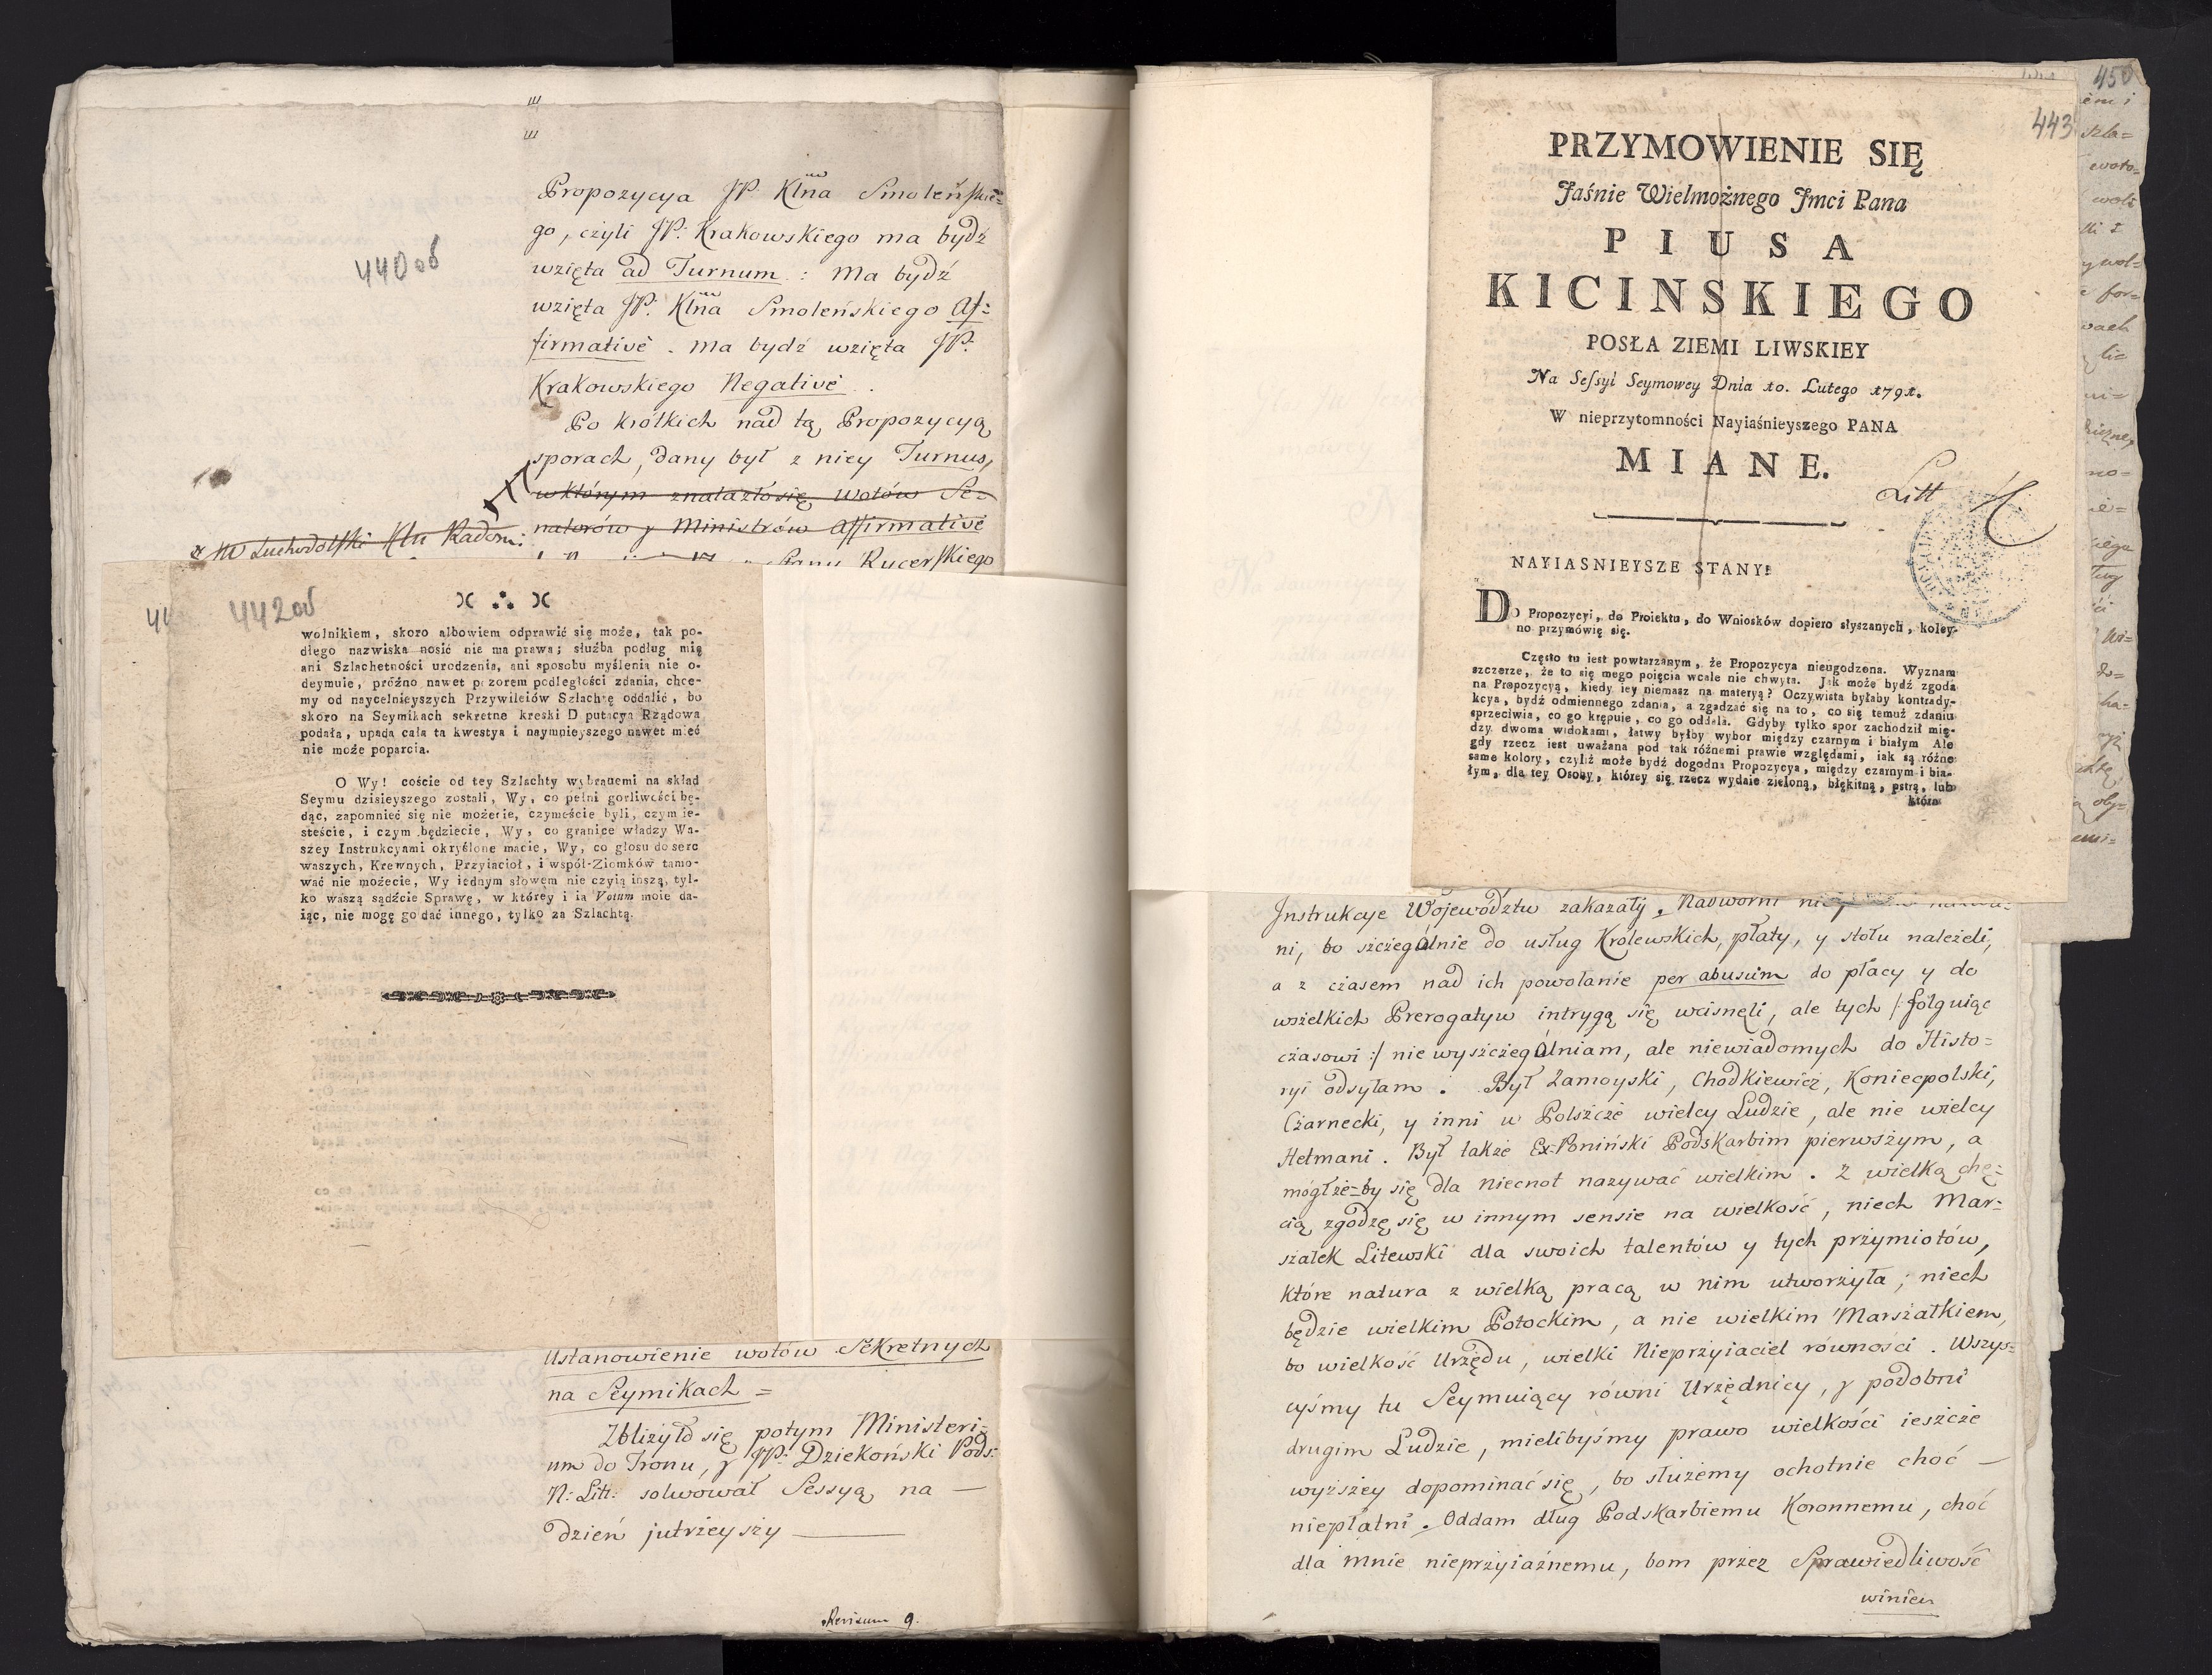 Propozycya JP. Klna Smoleńskie=
go, czyli JP: Krakowskiego ma bydź
wzięta ad Turnum : Ma bydź
wzięta JP. Klna Smoleńskiego Af=
firmativè . ma bydź wzięta JP.
Krakowskiego Negativè .
Po krótkich nad tą Propozycyą
sporach, dany był z niey Turnus,
w którym znalazło się wotów Se=
natorów y Ministrów affirmativè
JW Suchodolski Kln Radom:
Rycerskiego
440 об
442 об
wolnikiem, skoro albowiem odprawić się może, tak po-
dłego nazwiska nosić nie ma prawa; służba podług mię
ani Szlachetności urodzenia, ani sposobu myślenia nie o-
deymuie, próżno nawet pozorem podległości zdania, chce-
my od naycelnieyszych Przywileiów Szlachtę oddalić, bo
skoro na Seymikach sekretne kreski Deputacya Rządowa
podała, upada cała ta kwestya i naymnieyszego nawet mieć
nie może poparcia.
O Wy! coście od tey Szlachty wybranemi na skład
Seymu dzisieyszego zostali, Wy, co pełni gorliwości bę-
dąc, zapomnieć się nie możecie, czymeście byli, czym ie-
steście, i czym będziecie, Wy, co granice władzy Wa-
szey Instrukcyami okryślone macie, Wy, co głosu do serc
waszych, Krewnych, Przyiacioł, i współ-Ziomków tamo-
wać nie możecie, Wy iednym słowem nie czyią inszą, tyl-
ko waszą sądźcie Sprawę, w którey i ia Votum moie da-
iąc, nie mogę go dać innego, tylko za Szlachtą.
Ustanowienie wotów Sekretnych
na Seymikach =
Zbliżyło się potym Ministeri=
um do Tronu, y JP: Dziekoński Pods:
N: Litt: solwował Sessyą na —
dzień jutrzeyszy
Revisum 9.
450
443
PRZYMOWIENIE SIĘ
Jaśnie Wielmożnego Jmci Pana
PIUSA
KICINSKIEGO
POSŁA ZIEMI LIWSKIEY
Na Sessyi Seymowey Dnia 10. Lutego 1791.
W nieprzytomności Nayiaśnieyszego PANA
MIANE.
Litt
NAYIASNIEYSZE STANY!
Do Propozycyi, do Proiektu, do Wniosków dopiero słyszanych, koley-
no przymówię się.
Często tu iest powtarzanym, że Propozycya nieugodzona. Wyznam
szczerze, że to się mego poięcia wcale nie chwyta. Jak może bydź zgoda
na Propozycyą, kiedy iey niemasz na materyą? Oczywista byłaby kontrady-
kcya, bydź odmiennego zdania, a zgadzać się na to, co się temuż zdaniu
sprzeciwia, co go krępuie, co go oddala. Gdyby tylko spor zachodził mię-
dzy dwoma widokami, łatwy byłby wybor między czarnym i białym Ale
gdy rzecz iest uważana pod tak różnemi prawie względami, iak są różne
same kolory, czyliż może bydź dogodna Propozycya, między czarnym i bia-
łym, dla tey Osoby, którey się rzecz wydaie zieloną, błękitną, pstrą, lub
która
Instrukcye Województw zakazały. Nadworni
ni, bo szczególnie do usług Krolewskich, płaty, y stołu należeli,
a z czasem nad ich powołanie per abusum do płacy y do
wszelkich Prerogatyw intrygą się wcisnęli, ale tych /: folguiąc
czasowi :/ nie wyszczególniam, ale niewiadomych do Histo=
ryi odsyłam . Był Zamoyski, Chodkiewicz, Koniecpolski,
Czarnecki, y inni w Polszcze wielcy Ludzie, ale nie wielcy
Hetmani . Był także Ex-Poniński Podskarbim pierwszym, a
mógłże-by się dla niecnot nazywać wielkim . Z wielką chę=
cią zgodzę się w innym sensie na wielkość, niech Mar=
szałek Litewski dla swoich talentów y tych przymiotów,
które natura z wielką pracą w nim utworzyła, niech
będzie wielkim Potockim, a nie wielkim Marszałkiem,
bo wielkość Urzędu, wielki Nieprzyiaciel równości . Wszys=
cyśmy tu Seymuiący równi Urzędnicy, y podobni
drugim Ludzie, mielibyśmy prawo wielkości ieszcze
wyższey dopominać się, bo służemy ochotnie choć —
niepłatni . Oddam dług Podskarbiemu Koronnemu, choć
dla mnie nieprzyiaźnemu, bom przez Sprawiedliwość
winien